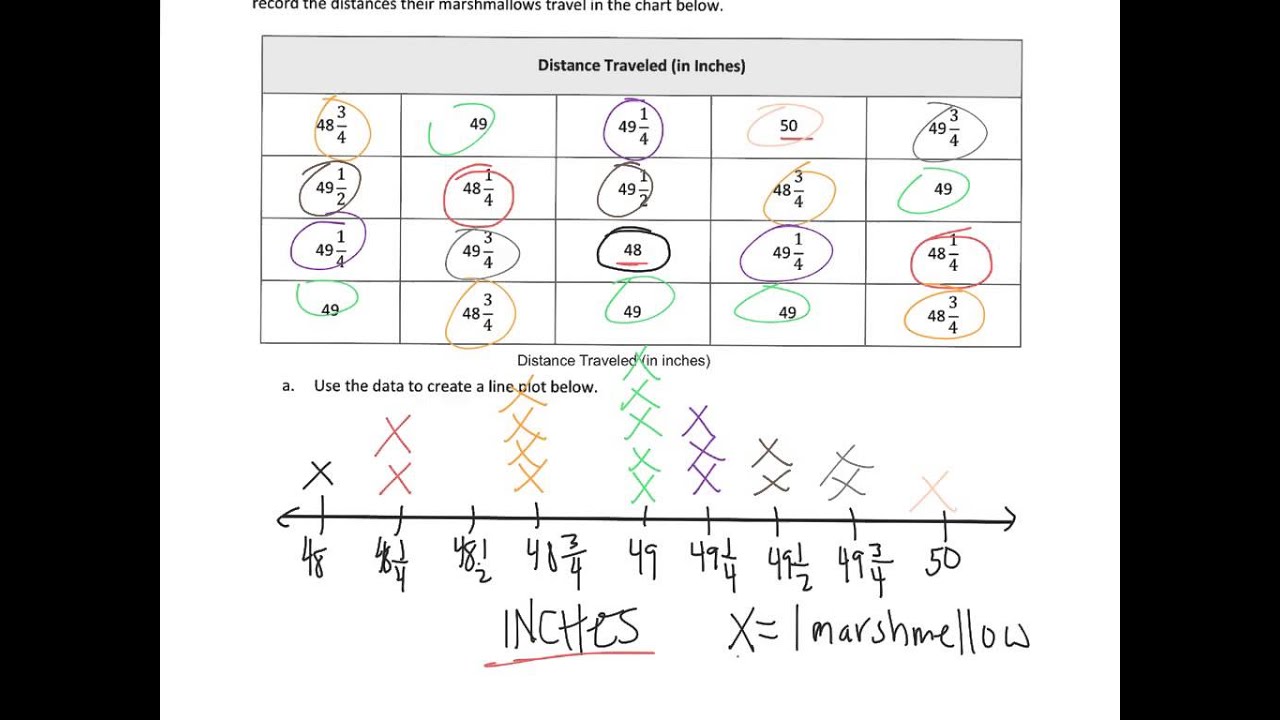 record the distances their marshmallows travel in the chart below.
Distance Traveled (in Inches)
48 3/4 49 49 1/4 50 49 3/4
49 1/2 48 1/4 49 1/2 48 3/4 49
49 1/4 49 3/4 48 49 1/4 48 1/4
49 48 3/4 49 49 48 3/4
Distance Traveled (in inches)
a. Use the data to create a line plot below.
48 48 1/4 48 1/2 48 3/4 49 49 1/4 49 1/2 49 3/4 50
INCHES X = 1 marshmellow